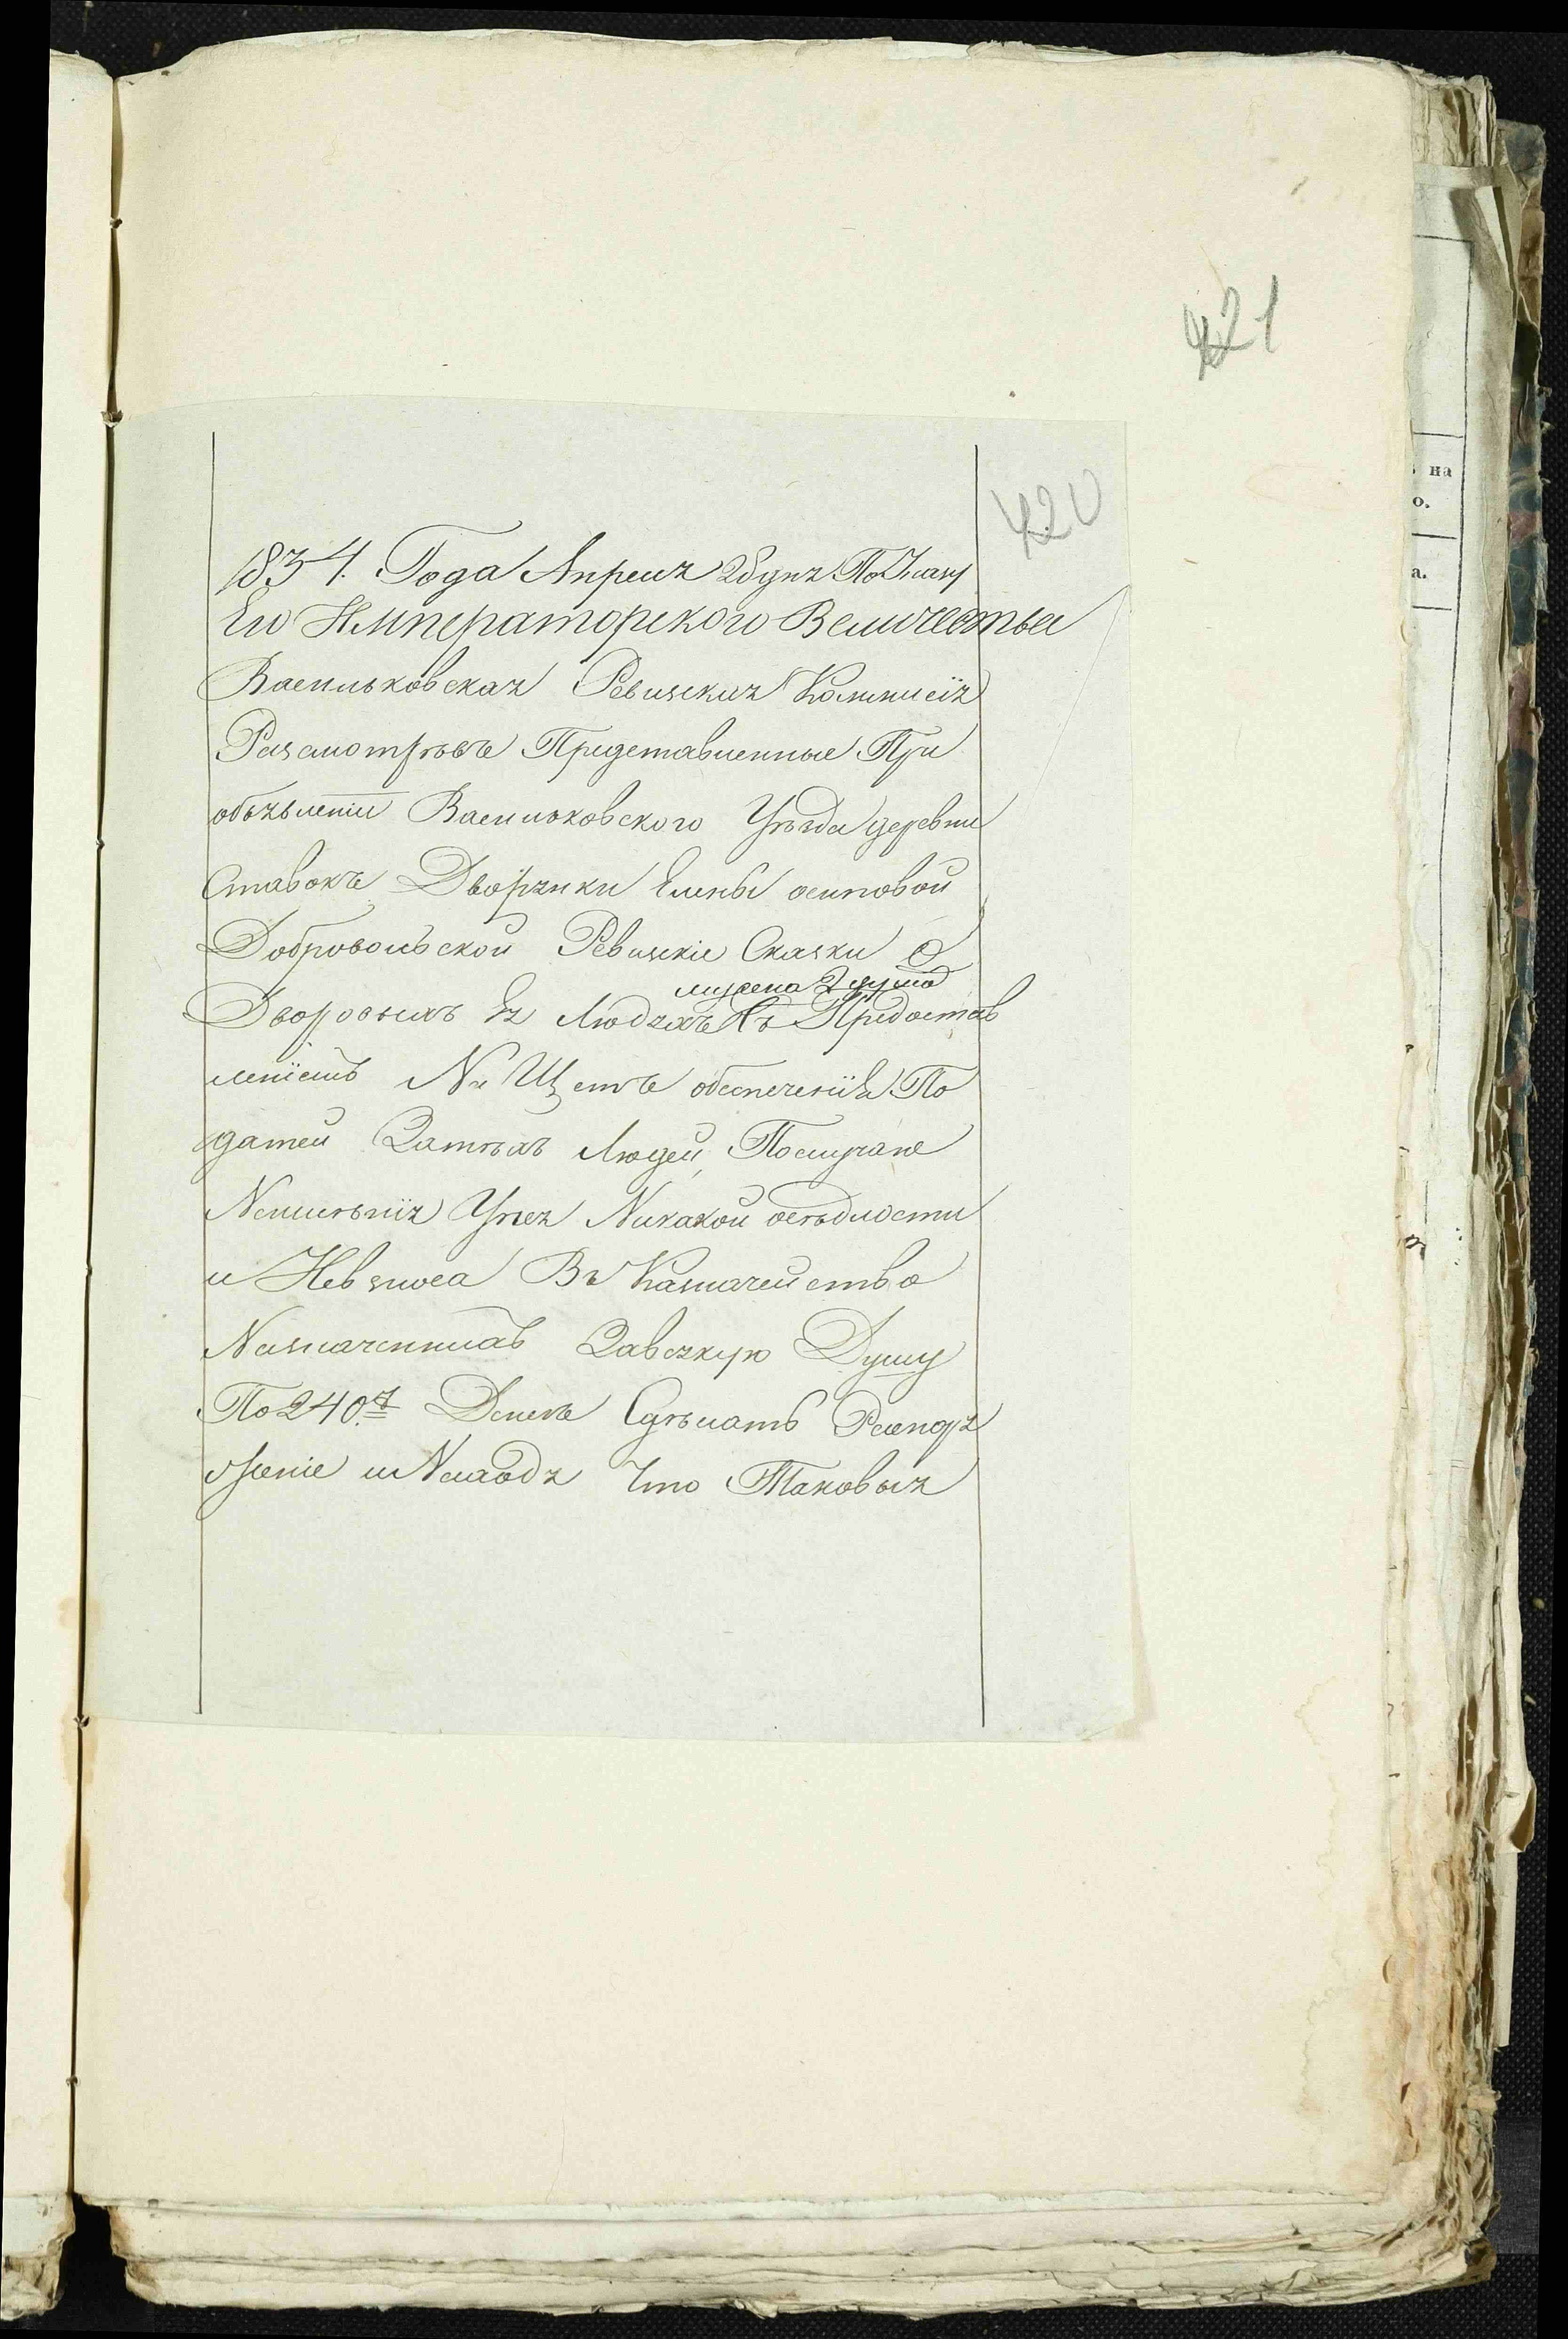 421
420
1834. Года Апреля 28 дня По Указу
Его Императорского Величества
Васильковская Ревизския Коммисія
Разсмотревъ Представленные При
объявленіи Васильковского Уезда деревни
Ставокъ Дворянки Елены осиповой
Добровольской Ревизскіе Сказки О
мужеска 2 душа
Дворовыхъ Ея Людяхъ Съ Предостав
леніемъ На Щетъ обеспеченія По
датей Затехъ Людей, Послучаю
Неименія Унея Никакой оседлости
и Невзноса Въ Казначейство
Назначенныхъ Завсякую Душу
По 240. Денегъ Сделать Распоря
женіе и Находя Что Таковыя
на
о.
а.